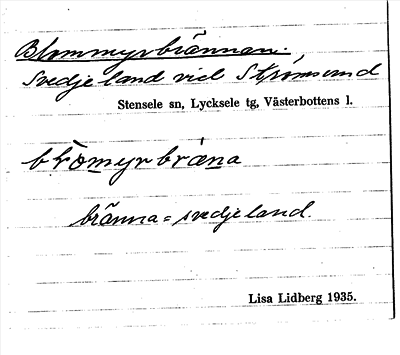 Blommyrbrännan.
Svedjeland vid Strömsund
Stensele sn, Lycksele tg, Västerbottens l.
bränna = svedjeland.
Lisa Lidberg 1935.